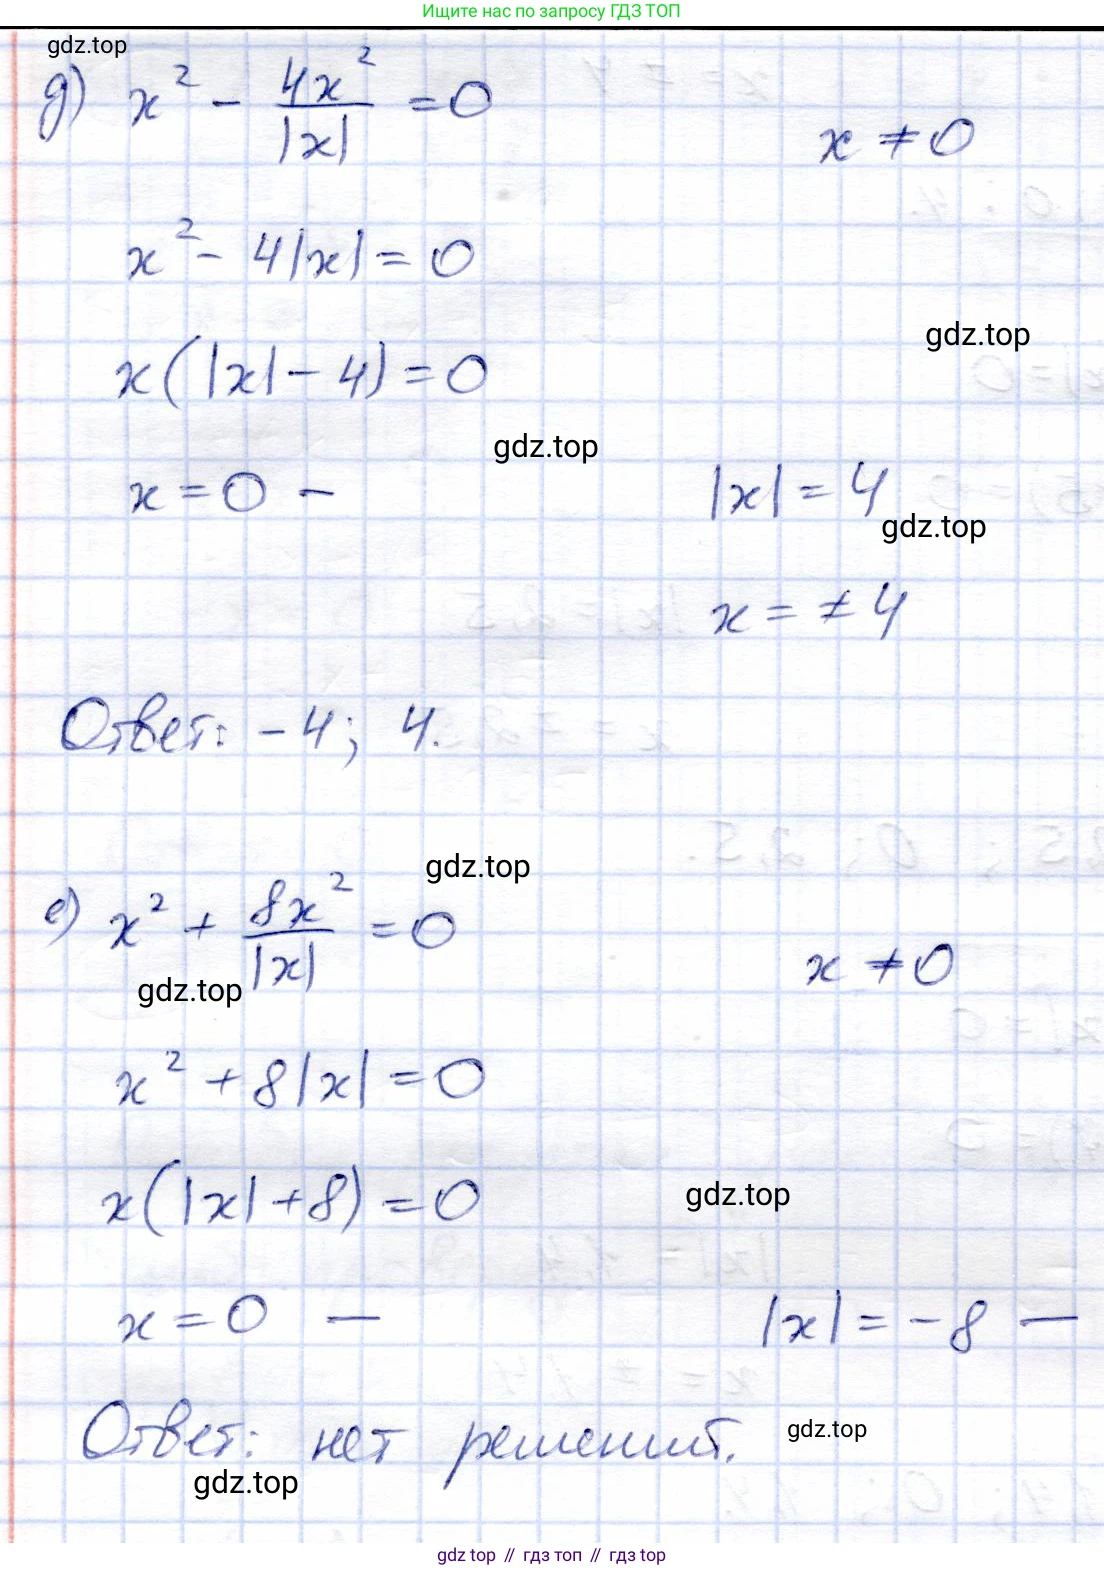 Ищите нас по запросу ГДЗ ТОП
gdz.top
д) x² - 4x²/|x| = 0 x ≠ 0
x² - 4|x| = 0
gdz.top
x(|x| - 4) = 0
gdz.top
x = 0 — |x| = 4
gdz.top
x = ±4
Ответ: -4; 4.
gdz.top
е) x² + 8x²/|x| = 0 x ≠ 0
gdz.top
x² + 8|x| = 0
x(|x| + 8) = 0
gdz.top
x = 0 — |x| = -8 —
Ответ: нет решений.
gdz.top
gdz.top
gdz top // гдз топ // gdz top